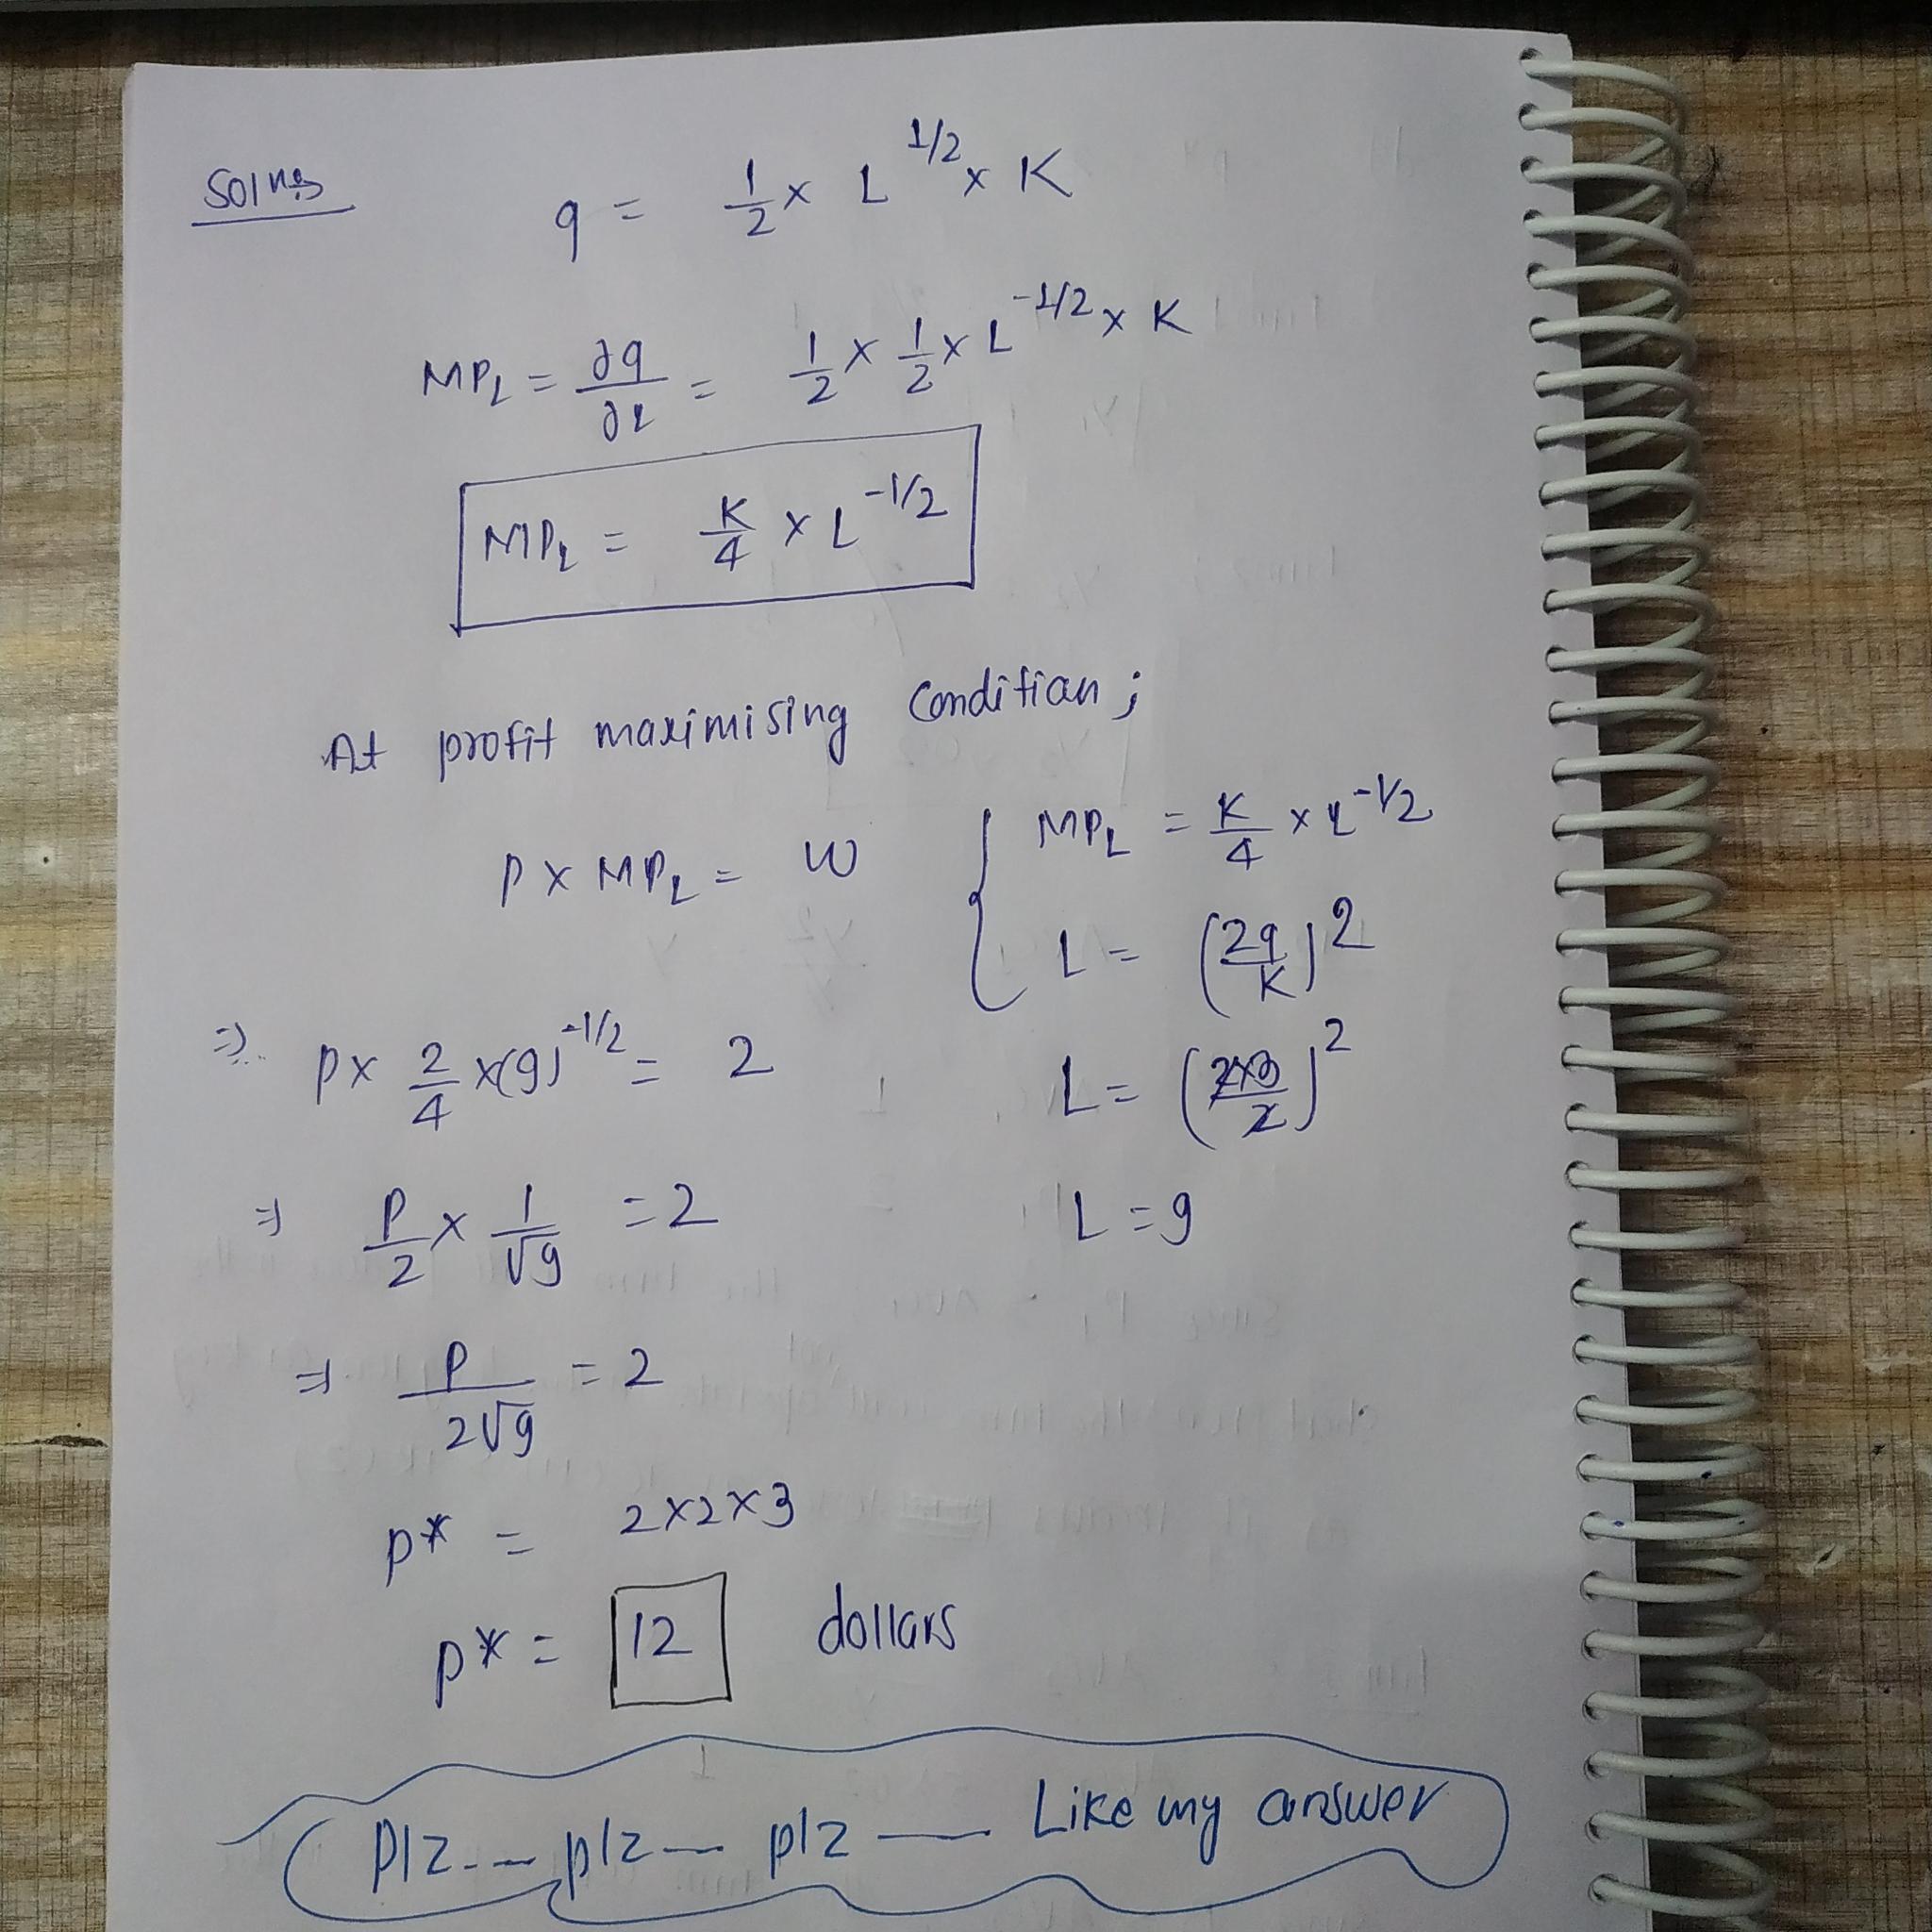 Solns
q = 1/2 × L^1/2 × K
MP_L = ∂q/∂L = 1/2 × 1/2 × L^-1/2 × K
MP_L = K/4 × L^-1/2
At profit maximising Condition;
P × MP_L = W
MP_L = K/4 × L^-1/2
L = (2q/K)^2
⇒ P × 2/4 × (9)^-1/2 = 2
L = (2×3/2)^2
⇒ P/2 × 1/√9 = 2
L = 9
⇒ P/2√9 = 2
P* = 2×2×3
P* = 12 dollars
Plz--- plz--- plz —— Like my answer